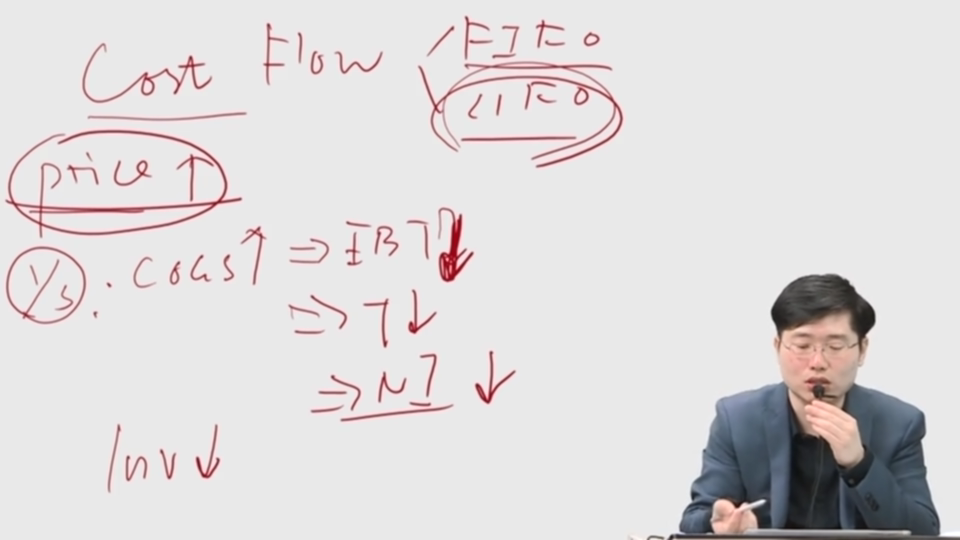 Cost Flow < FIFO
LIFO
price ↑
I/S : COGS ↑ ⇒ EBT ↓
⇒ T ↓
⇒ NI ↓
Inv ↓